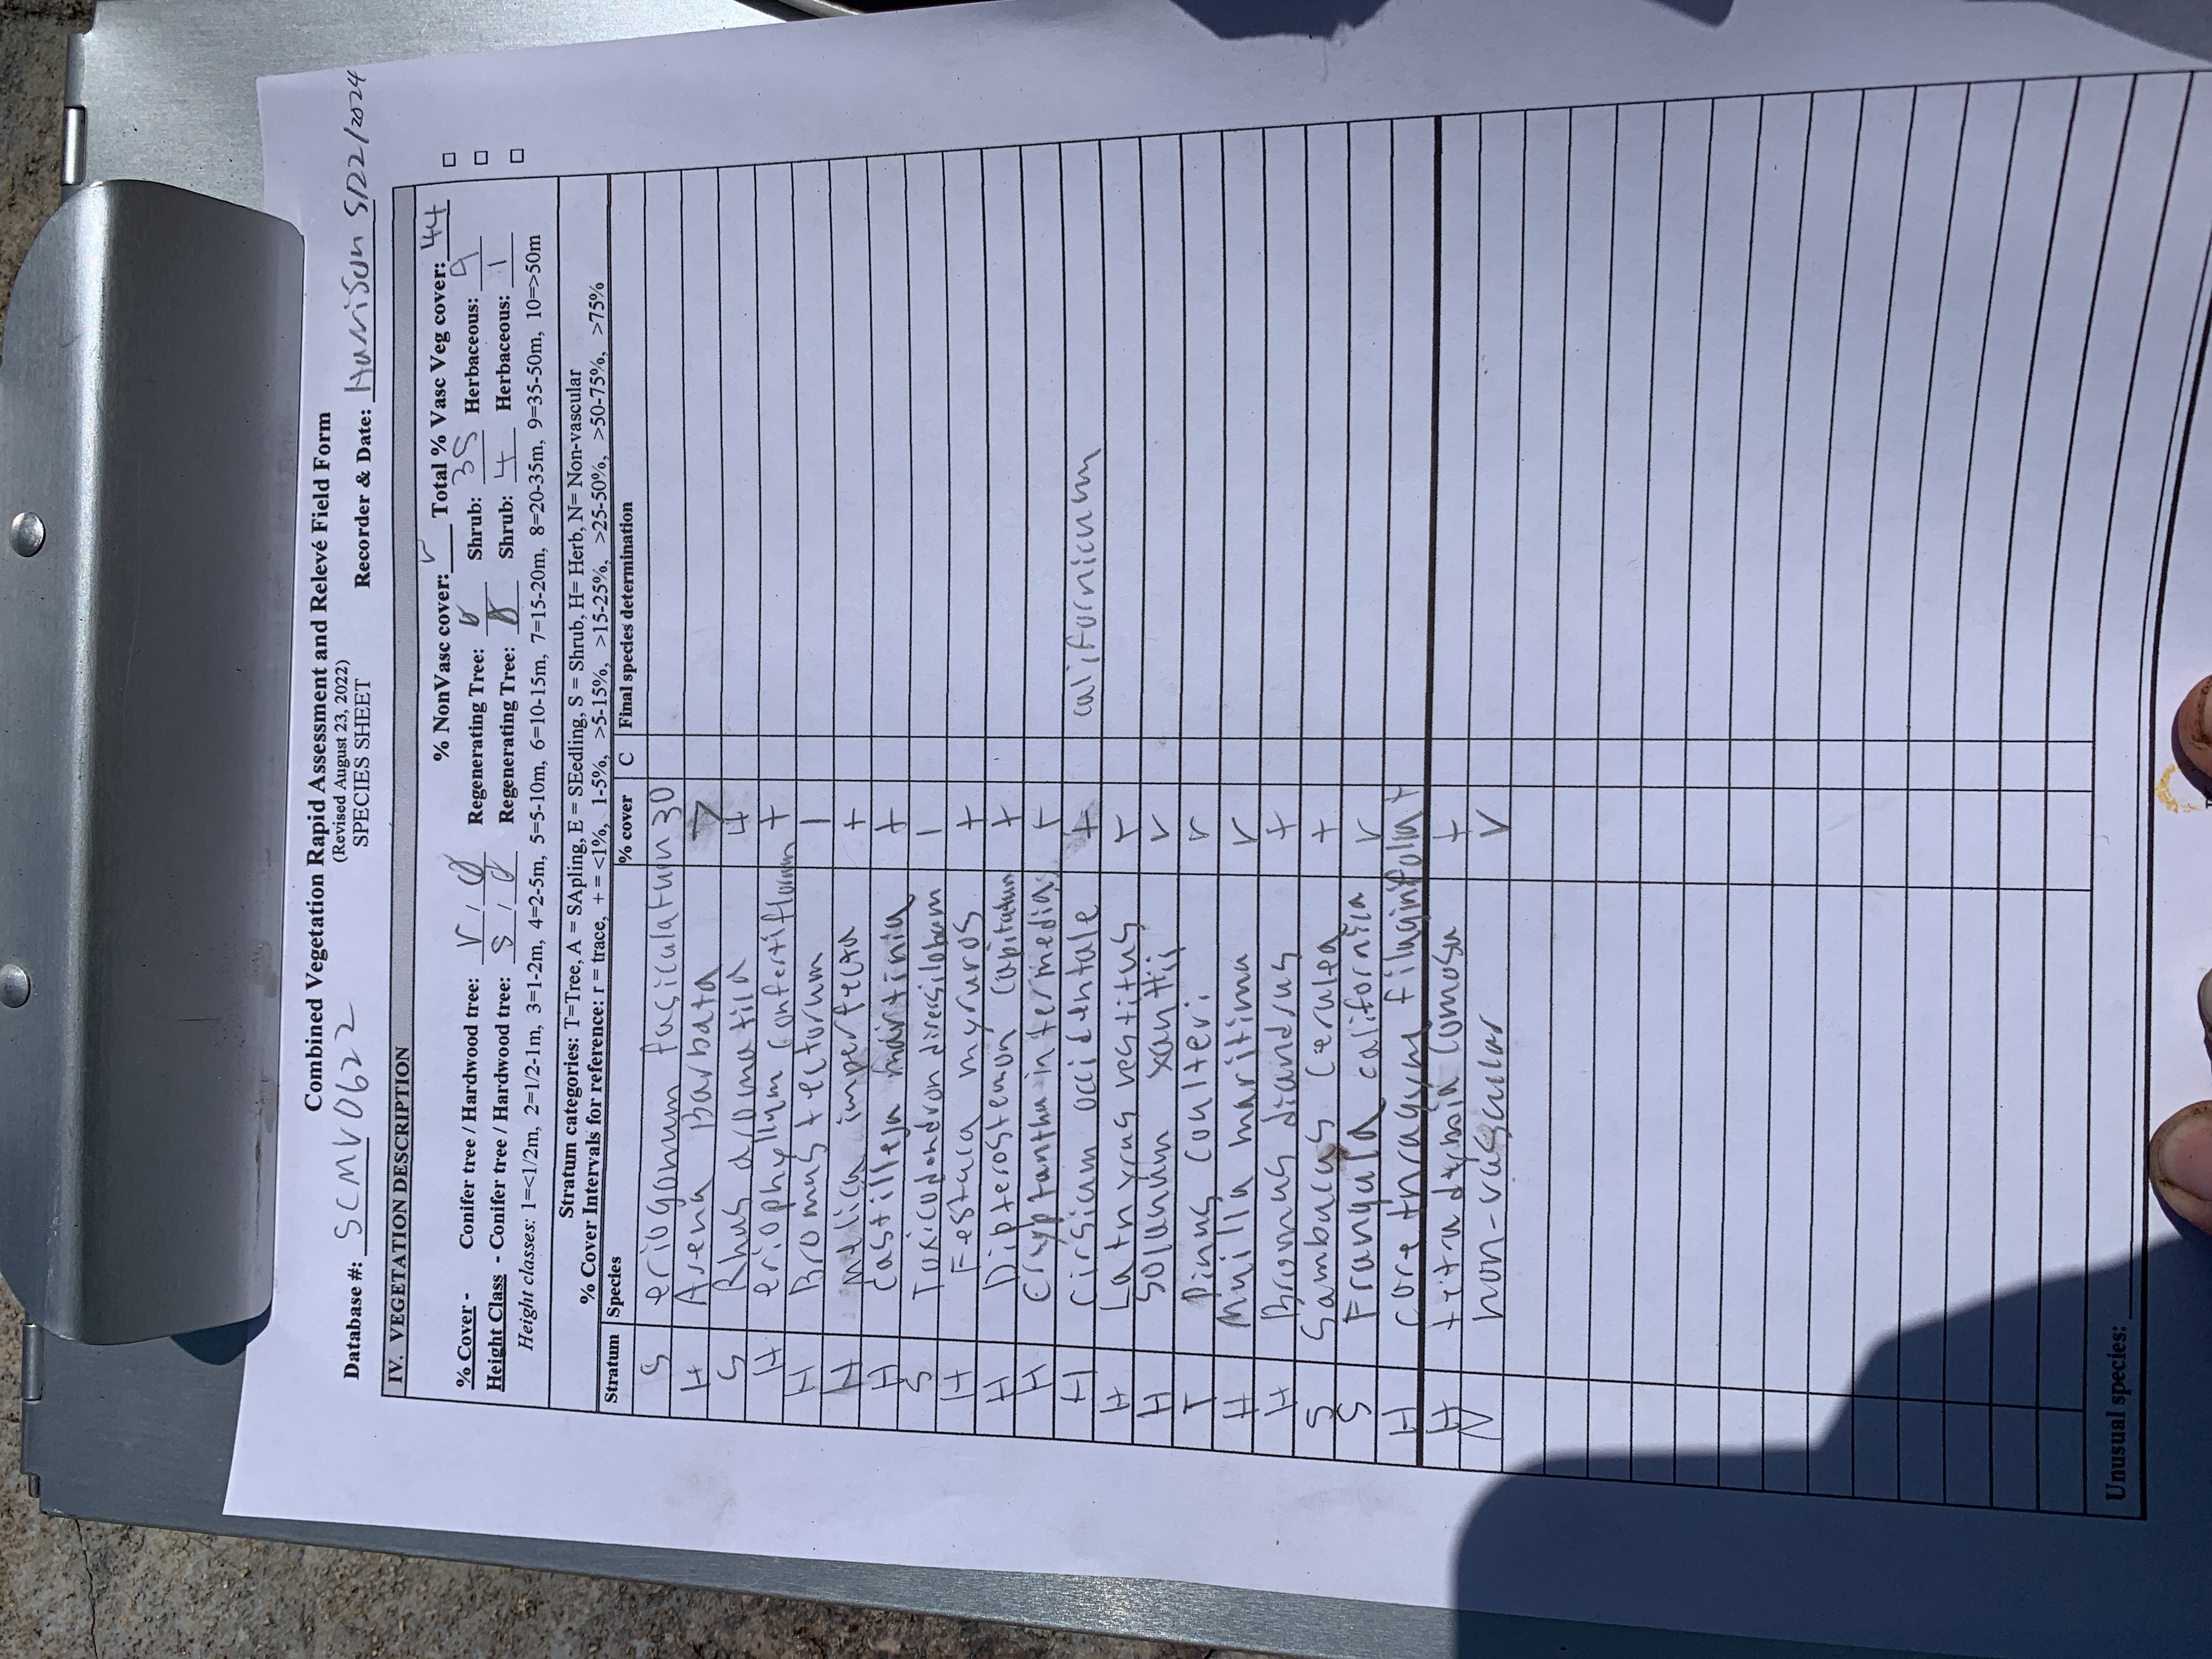 Combined Vegetation Rapid Assessment and Relevé Field Form
(Revised August 23, 2022)
SPECIES SHEET
Database #: SCMV0622 Recorder & Date: Harrison 5/22/2024
IV. VEGETATION DESCRIPTION
% NonVasc cover: r Total % Vasc Veg cover: 44
% Cover - Conifer tree / Hardwood tree: r / Ø Regenerating Tree: Ø Shrub: 35 Herbaceous: 9
Height Class - Conifer tree / Hardwood tree: 5 / Ø Regenerating Tree: Ø Shrub: 4 Herbaceous: 1
Height classes: 1=<1/2m, 2=1/2-1m, 3=1-2m, 4=2-5m, 5=5-10m, 6=10-15m, 7=15-20m, 8=20-35m, 9=35-50m, 10=>50m
Stratum categories: T=Tree, A = SApling, E = SEedling, S = Shrub, H= Herb, N= Non-vascular
% Cover Intervals for reference: r = trace, + = <1%, 1-5%, >5-15%, >15-25%, >25-50%, >50-75%, >75%
Stratum Species % cover C Final species determination
S eriogonum fasiculatum 30
H Avena Barbata 7
S Rhus aromatica 4
H eriophyllum confertiflorum +
H Bromus tectorum 1
H Melica imperfecta +
H castilleja martinii +
S Toxicodendron diversilobum 1
H Festuca myuros +
H Dipterostemon capitatum +
H Cryptantha intermedia +
H Cirsium occidentale + californicum
H Lathyrus vestitus r
H Solanum xantii r
T Pinus coulteri r
H Muilla maritima r
H Bromus diandrus +
S Sambucus cerulea +
S Frangula californica r
H Corethragyne filaginifolia +
H tetradymia comosa +
N non-vascular r
Unusual species: